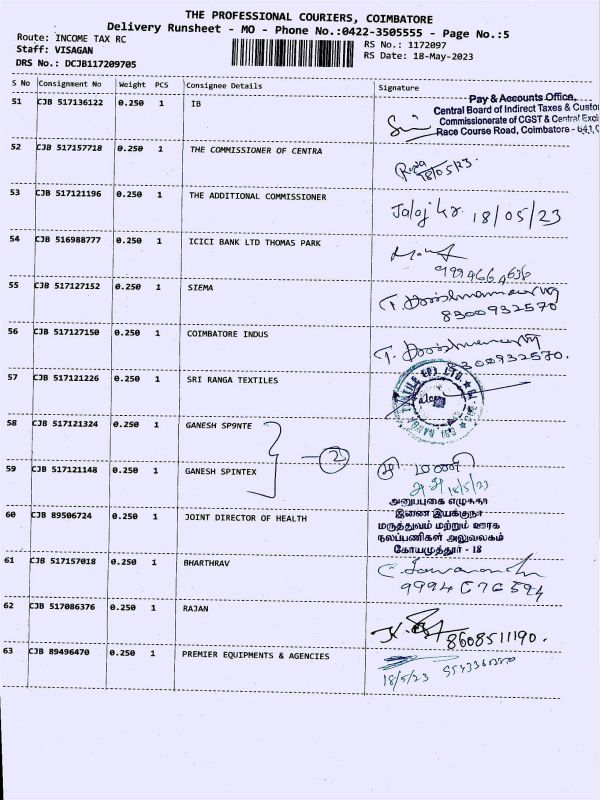 THE PROFESSIONAL COURIERS, COIMBATORE
Delivery Runsheet - MO - Phone No.:0422-3505555 - Page No.:5
Route: INCOME TAX RC
RS No.: 1172097
Staff: VISAGAN
RS Date: 18-May-2023
DRS No.: DCJB117209705
S No Consignment No Weight PCS Consignee Details Signature
51 CJB 517136122 0.250 1 IB
Pay & Accounts Office,
Central Board of Indirect Taxes & Custo
Commissionerate of CGST & Central Exci
Race Course Road, Coimbatore - 641
52 CJB 517157718 0.250 1 THE COMMISSIONER OF CENTRA
18/05/23.
53 CJB 517121196 0.250 1 THE ADDITIONAL COMMISSIONER
Jalaj Kr. 18/05/23
54 CJB 516988777 0.250 1 ICICI BANK LTD THOMAS PARK
55 CJB 517127152 0.250 1 SIEMA
8300932570
56 CJB 517127150 0.250 1 COIMBATORE INDUS
8300932570.
57 CJB 517121226 0.250 1 SRI RANGA TEXTILES
58 CJB 517121324 0.250 1 GANESH SP9NTE
2
59 CJB 517121148 0.250 1 GANESH SPINTEX
மணி
18/5/23
60 CJB 89506724 0.250 1 JOINT DIRECTOR OF HEALTH
இணை இயக்குநர்
மருத்துவம் மற்றும் ஊரக
நலப்பணிகள் அலுவலகம்
கோயமுத்தூர் - 18
61 CJB 517157018 0.250 1 BHARTHRAV
9994676594
62 CJB 517086376 0.250 1 RAJAN
8608511190.
63 CJB 89496470 0.250 1 PREMIER EQUIPMENTS & AGENCIES
18/5/23